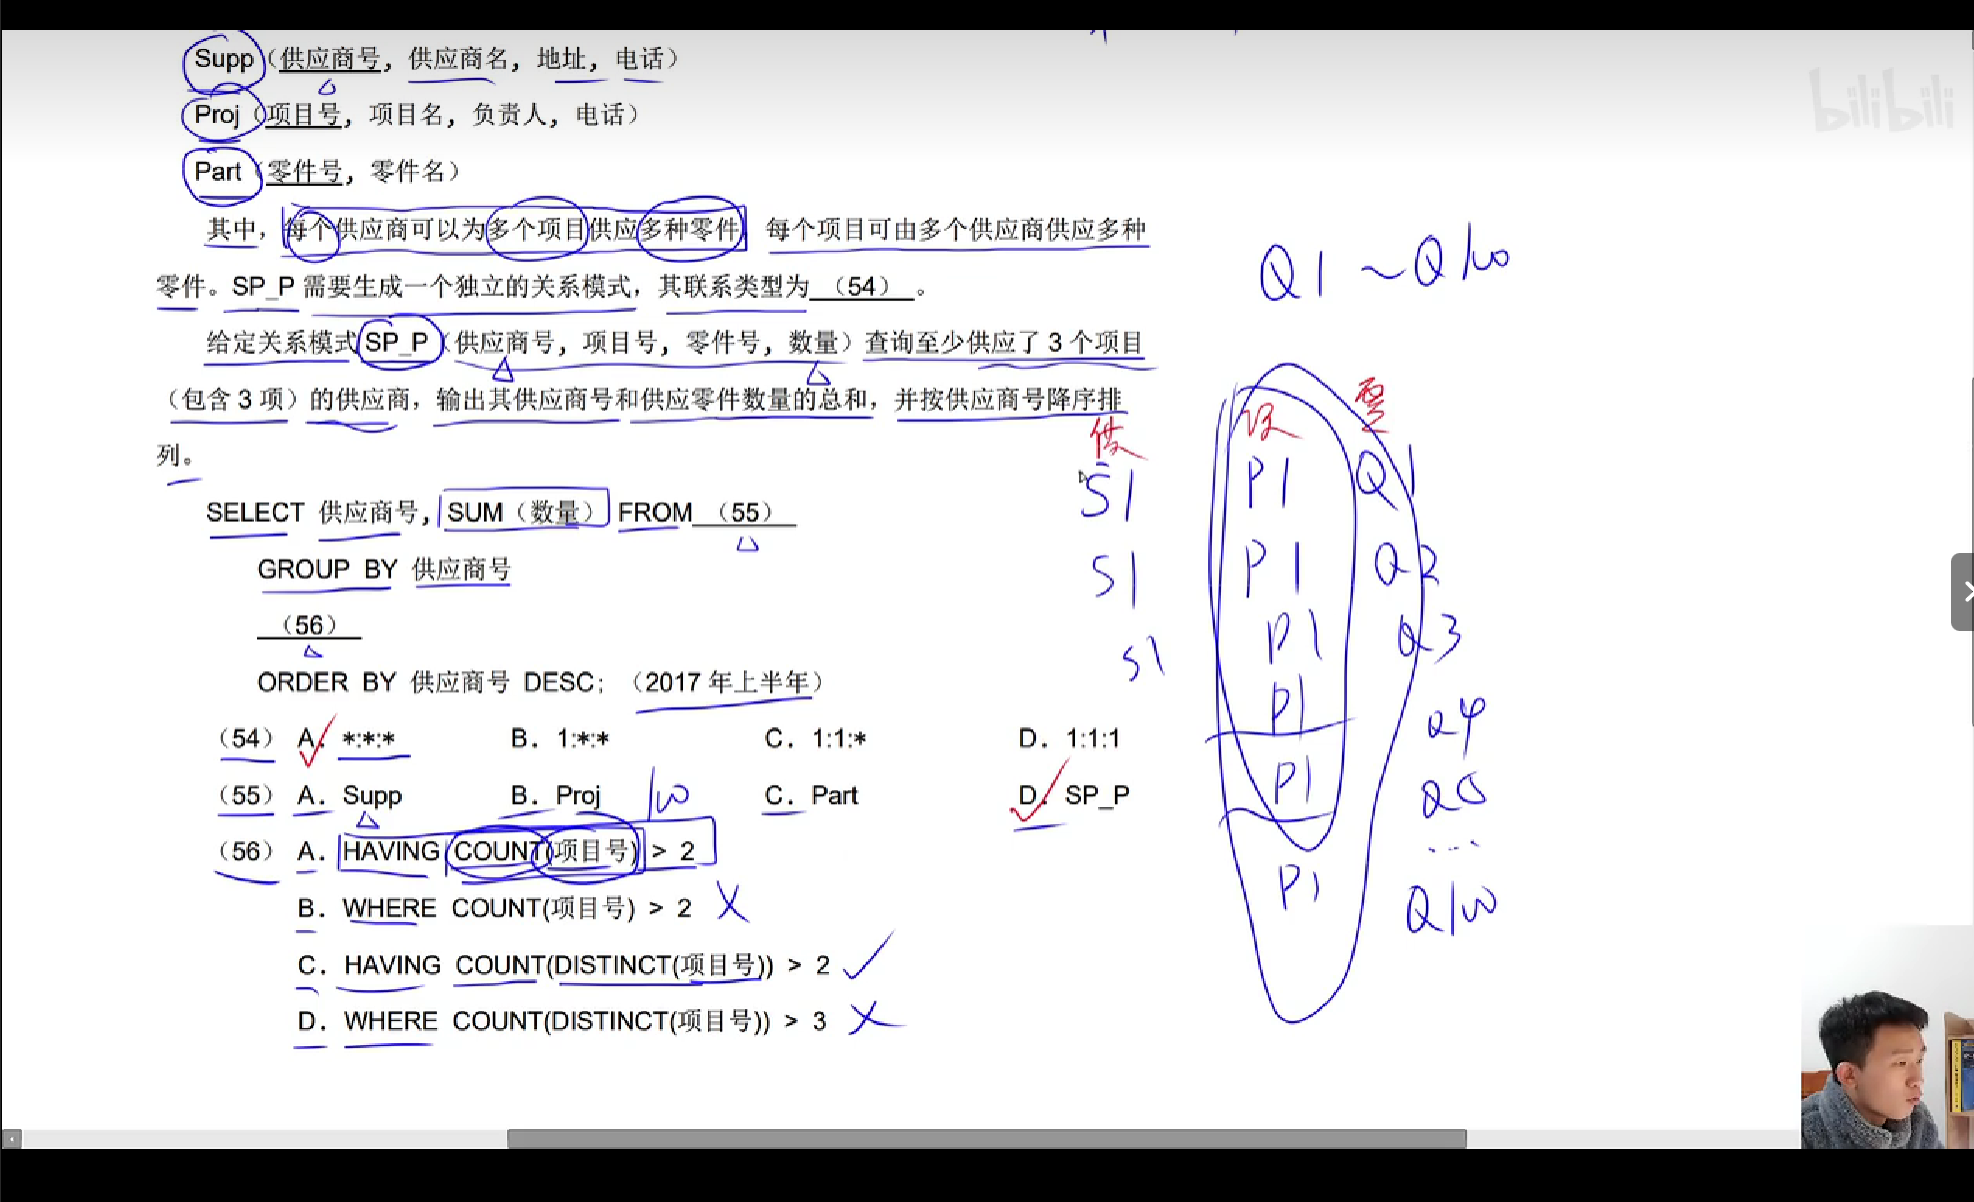 Supp（供应商号，供应商名，地址，电话）
bilibili
Proj（项目号，项目名，负责人，电话）
Part（零件号，零件名）
其中，每个供应商可以为多个项目供应多种零件，每个项目可由多个供应商供应多种
零件。SP_P 需要生成一个独立的关系模式，其联系类型为 （54） 。
Q1 ~ Q100
给定关系模式 SP_P（供应商号，项目号，零件号，数量）查询至少供应了 3 个项目
（包含 3 项）的供应商，输出其供应商号和供应零件数量的总和，并按供应商号降序排
列。
供 零
S1 P1 Q1
SELECT 供应商号，SUM（数量） FROM （55）
GROUP BY 供应商号
S1 P1 Q2
（56）
S1 P1 Q3
ORDER BY 供应商号 DESC；（2017 年上半年）
P1 Q4
（54） A. *:*:* B. 1:*:* C. 1:1:* D. 1:1:1
（55） A. Supp B. Proj C. Part D. SP_P
100
P1 Q5
（56） A. HAVING COUNT(项目号) > 2
...
B. WHERE COUNT(项目号) > 2
P1 Q100
C. HAVING COUNT(DISTINCT(项目号)) > 2
D. WHERE COUNT(DISTINCT(项目号)) > 3